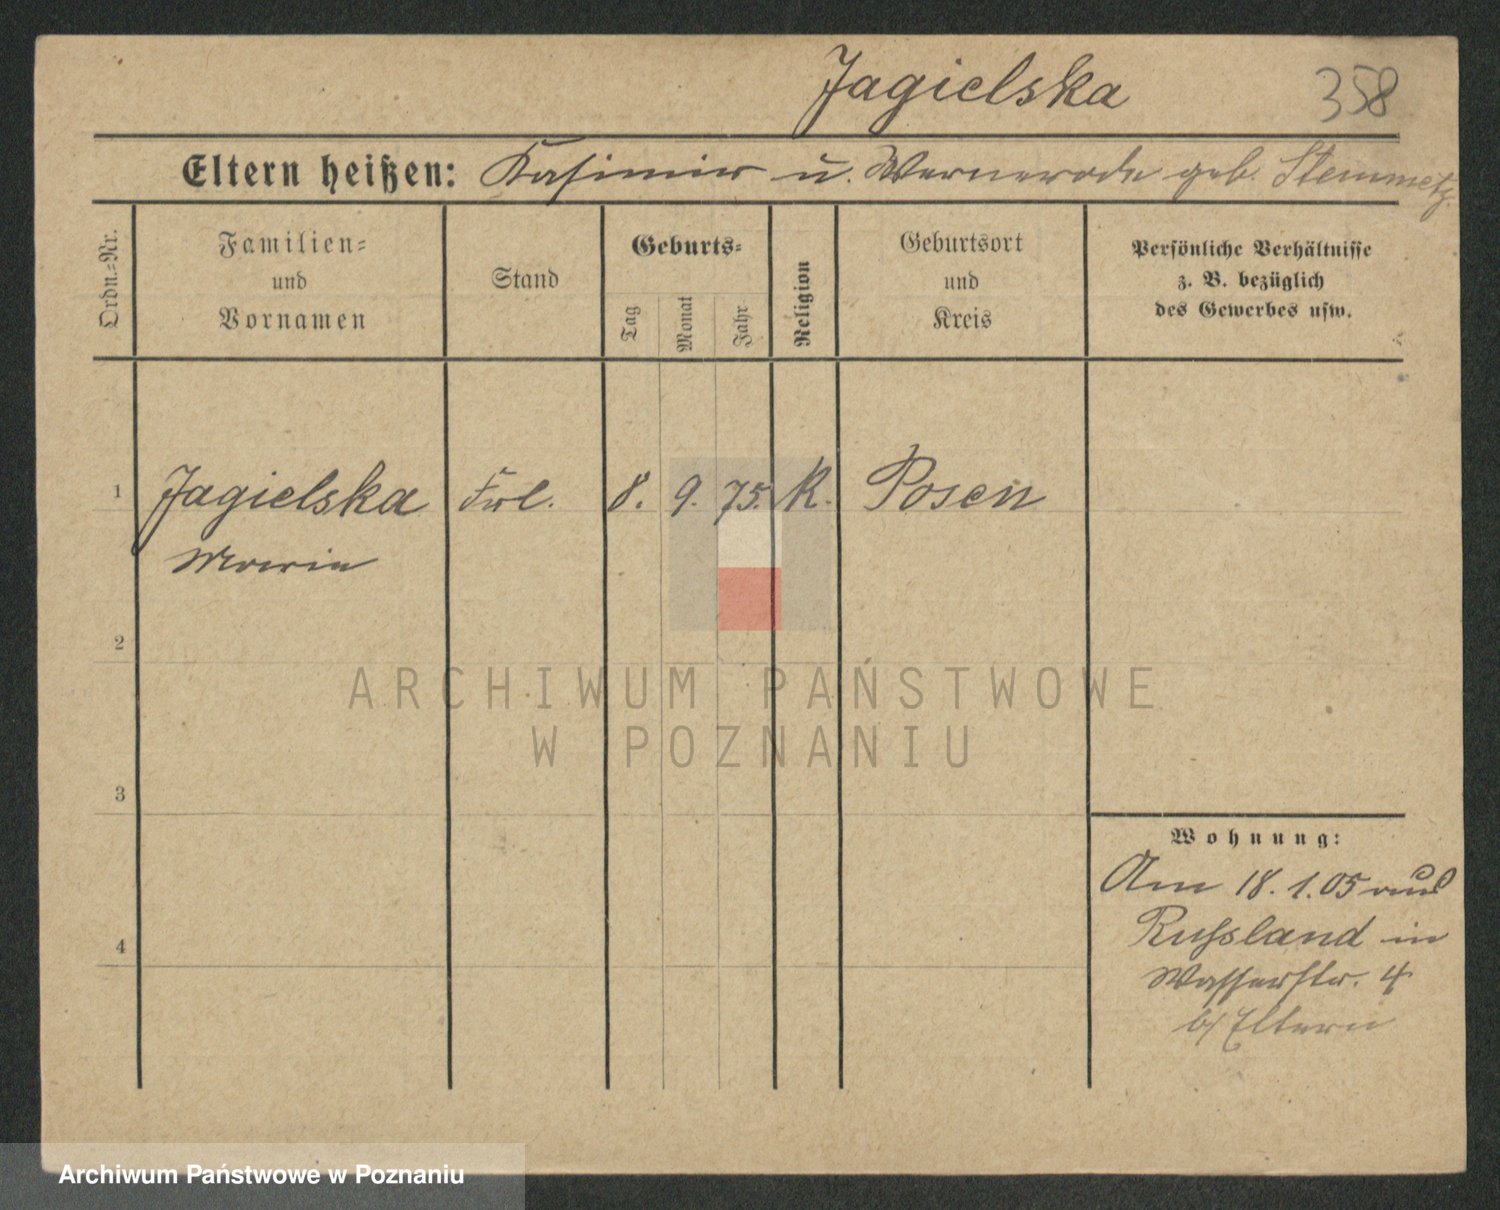 Jagielska 358
Eltern heißen: Kasimir u. Wernerode geb. Stemmetz.
Ordn.=Nr.
Familien=
und
Vornamen
Stand
Geburts=
Tag Monat Jahr
Religion
Geburtsort
und
Kreis
Persönliche Verhältnisse
z. B. bezüglich
des Gewerbes usw.
1 Jagielska Frl. 8. 9. 75. K. Posen
Maria
2
3
4
Wohnung:
Am 18. 1. 05 aus
Russland in
Wasserstr. 4
b/ Eltern
ARCHIWUM PAŃSTWOWE
W POZNANIU
Archiwum Państwowe w Poznaniu